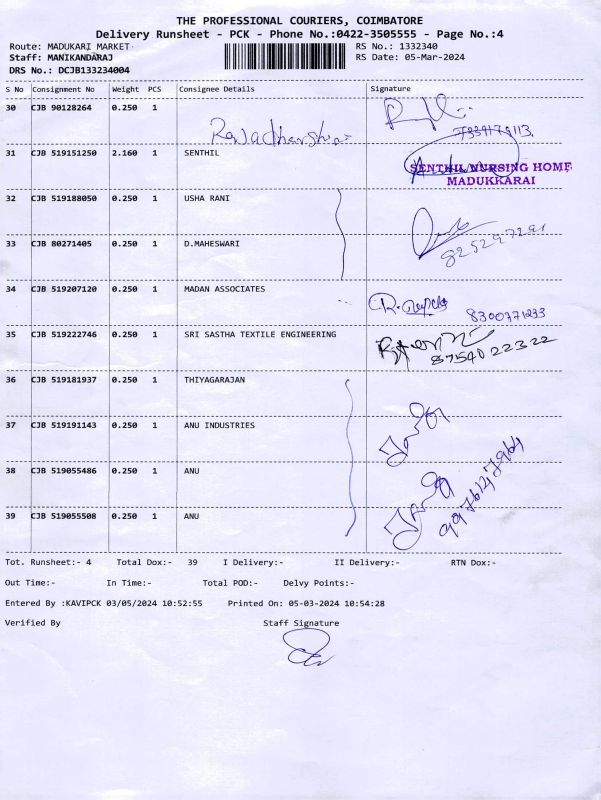 THE PROFESSIONAL COURIERS, COIMBATORE
Delivery Runsheet - PCK - Phone No.:0422-3505555 - Page No.:4
Route: MADUKARI MARKET
RS No.: 1332340
Staff: MANIKANDARAJ
RS Date: 05-Mar-2024
DRS No.: DCJB133234004
S No Consignment No Weight PCS Consignee Details Signature
30 CJB 90128264 0.250 1
31 CJB 519151250 2.160 1 SENTHIL
SENTHIL NURSING HOME
MADUKKARAI
32 CJB 519188050 0.250 1 USHA RANI
33 CJB 80271405 0.250 1 D.MAHESWARI
34 CJB 519207120 0.250 1 MADAN ASSOCIATES
8300771233
35 CJB 519222746 0.250 1 SRI SASTHA TEXTILE ENGINEERING
8754022322
36 CJB 519181937 0.250 1 THIYAGARAJAN
37 CJB 519191143 0.250 1 ANU INDUSTRIES
38 CJB 519055486 0.250 1 ANU
39 CJB 519055508 0.250 1 ANU
Tot. Runsheet:- 4 Total Dox:- 39 I Delivery:- II Delivery:- RTN Dox:-
Out Time:- In Time:- Total POD:- Delvy Points:-
Entered By :KAVIPCK 03/05/2024 10:52:55 Printed On: 05-03-2024 10:54:28
Verified By Staff Signature